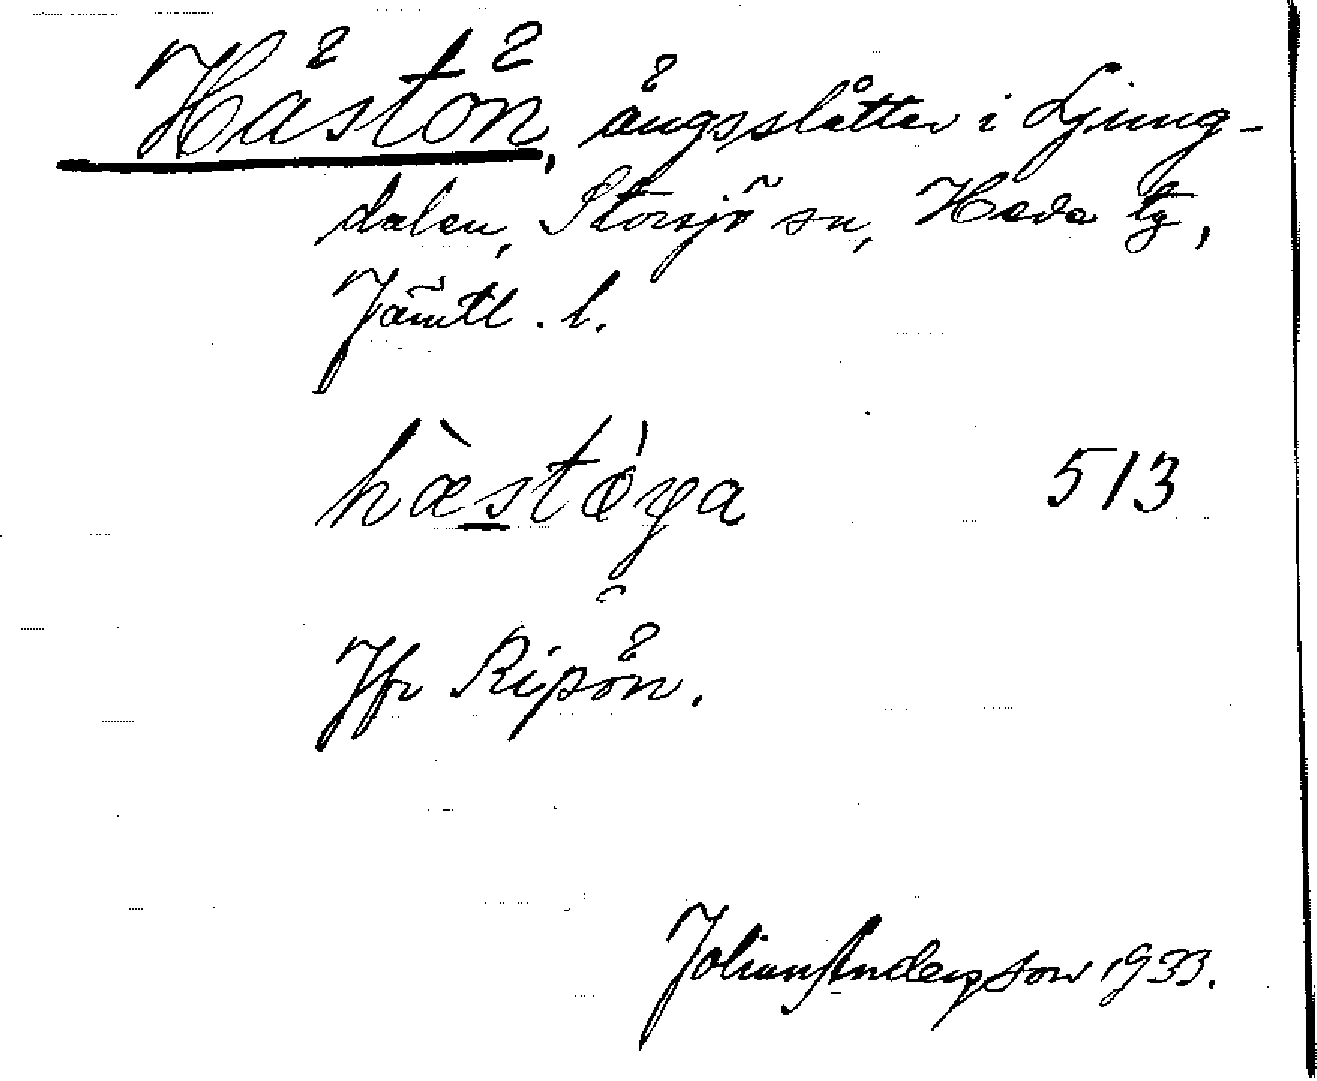 Hästön, ängsslåtter i Ljung-
dalen, Storsjö sn, Hede tg,
Jämtl. l.
hæ̀stǿya 513
Jfr Ripön.
Johan Anderson 1933.